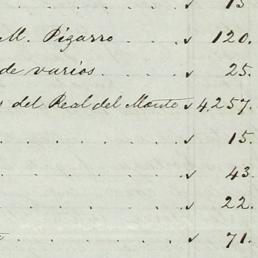 15
M. Pizarro . . . . . " 120.
de varios . . . . . " 25.
s del Real del Monte " 4.257.
" 15.
" 43.
" 22.
" 71.